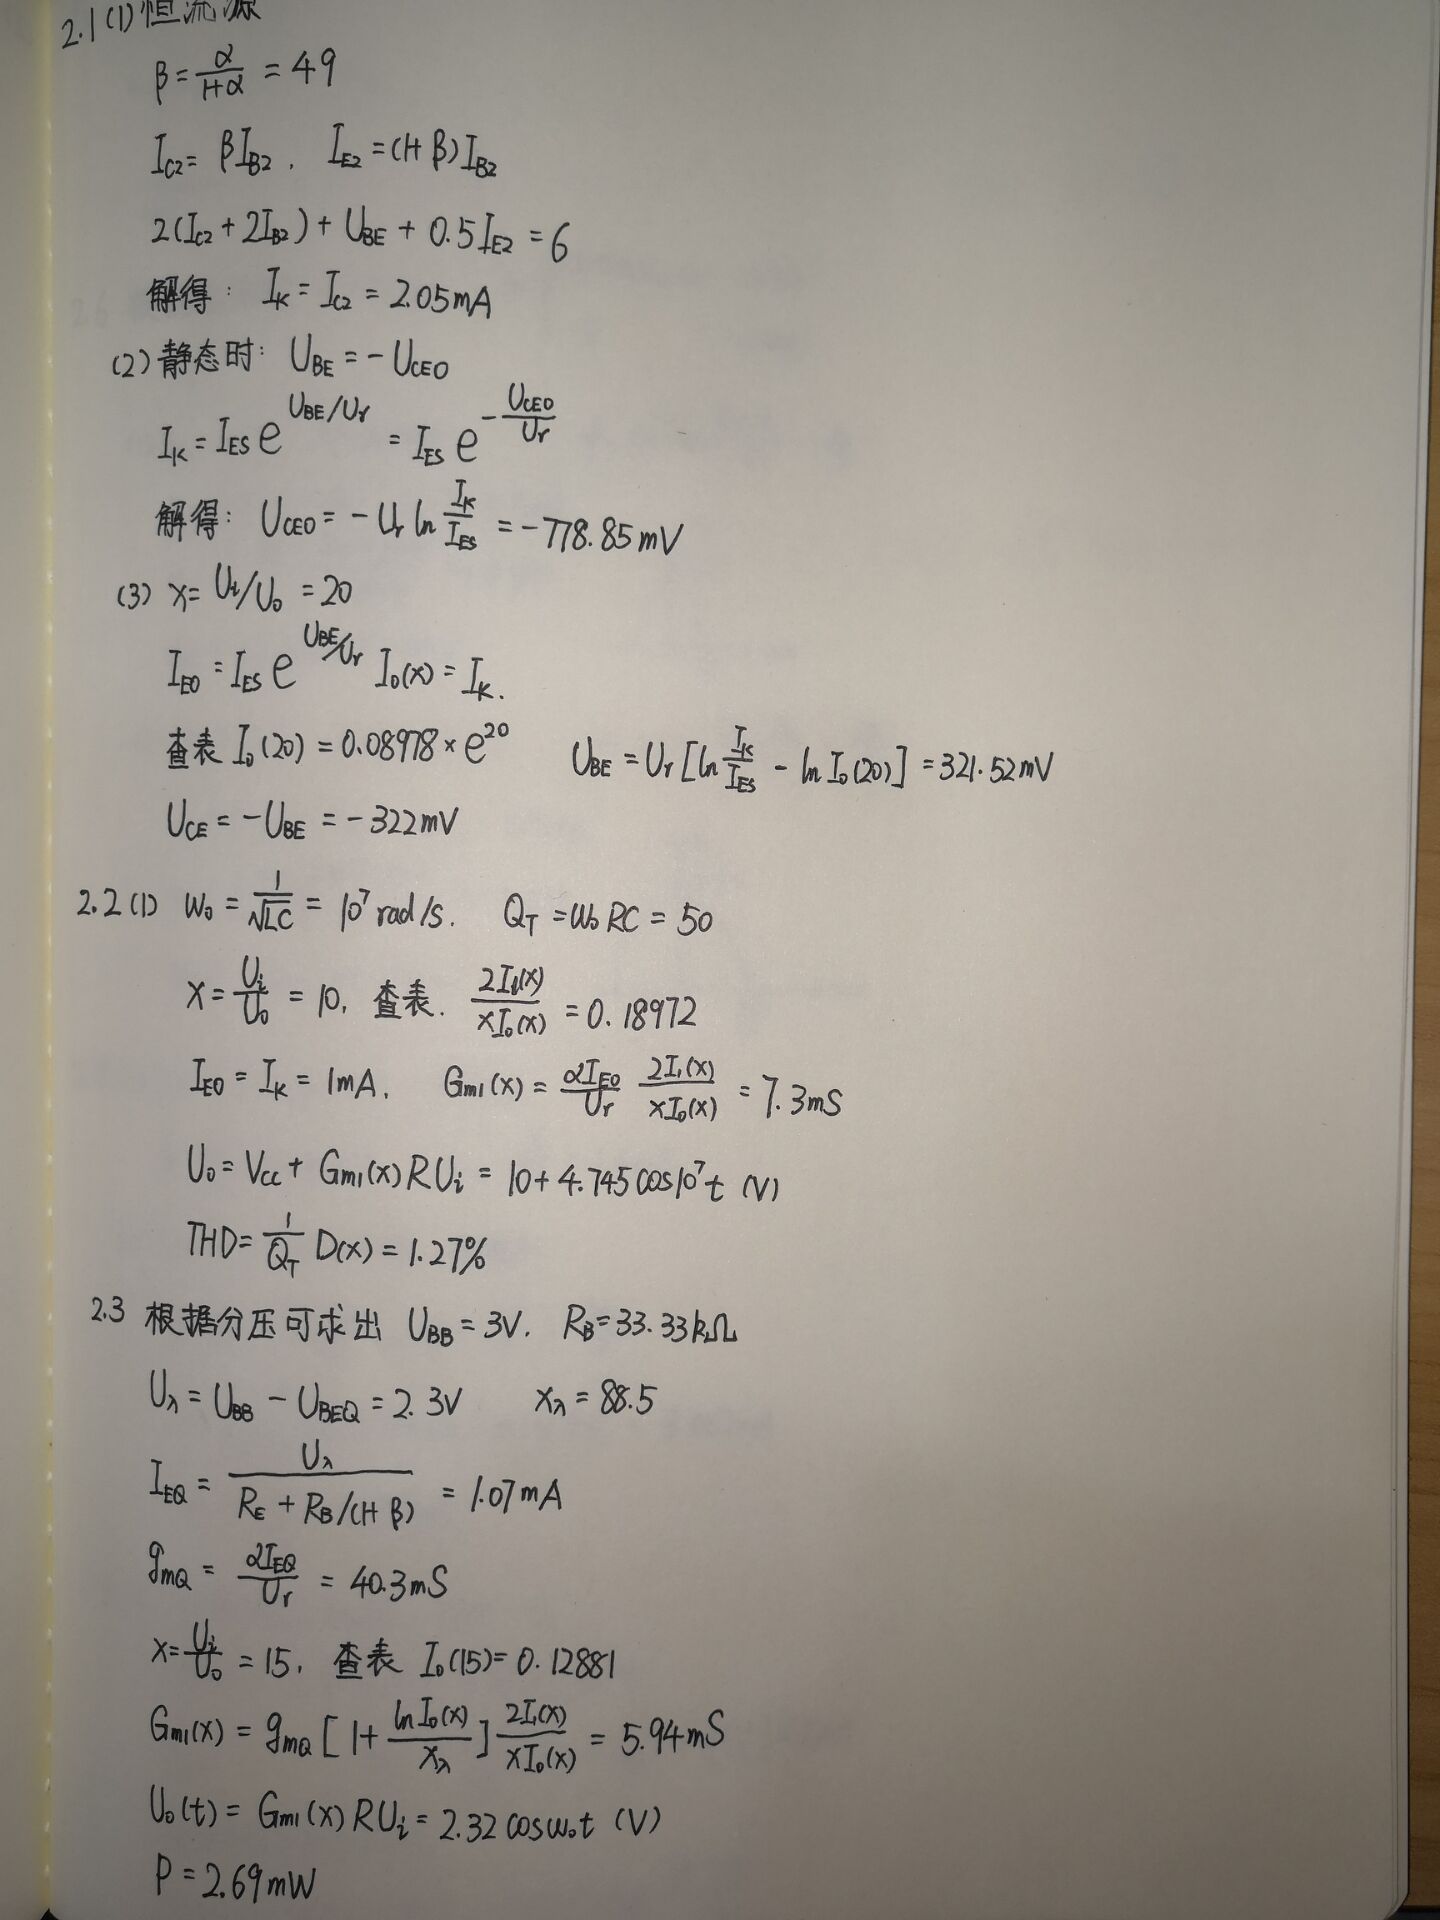 2.1(1)恒流源
β = α/(1+α) = 49
I_C2 = βI_B2 . I_E2 = (1+β)I_B2
2(I_C2 + 2I_B2) + U_BE + 0.5I_E2 = 6
解得: I_K = I_C2 = 2.05mA
(2)静态时: U_BE = -U_CE0
I_K = I_ES e^(U_BE/U_r) = I_ES e^(-U_CE0/U_r)
解得: U_CE0 = -U_r ln I_K/I_ES = -778.85mV
(3) x = U_i/U_0 = 20
I_E0 = I_ES e^(U_BE/U_r) I_0(x) = I_K.
查表 I_0(20) = 0.08978 × e^20 U_BE = U_r[ln I_K/I_ES - ln I_0(20)] = 321.52mV
U_CE = -U_BE = -322mV
2.2(1) W_0 = 1/√LC = 10^7 rad/s. Q_T = W_0 RC = 50
x = U_i/U_0 = 10, 查表. 2I_1(x)/xI_0(x) = 0.18972
I_E0 = I_K = 1mA, G_m1(x) = αI_E0/U_r 2I_1(x)/xI_0(x) = 7.3mS
U_0 = V_CC + G_m1(x)RU_i = 10 + 4.745cos10^7t (V)
THD = 1/Q_T D(x) = 1.27%
2.3 根据分压可求出 U_BB = 3V. R_B = 33.33kΩ
U_λ = U_BB - U_BEQ = 2.3V x_λ = 88.5
I_EQ = U_λ/(R_E + R_B/(1+β)) = 1.07mA
g_mQ = αI_EQ/U_r = 40.3mS
x = U_i/U_0 = 15, 查表 I_0(15) = 0.12881
G_m1(x) = g_mQ[1 + lnI_0(x)/x_λ] 2I_1(x)/xI_0(x) = 5.94mS
U_0(t) = G_m1(x)RU_i = 2.32cosw_0t (V)
P = 2.69mW